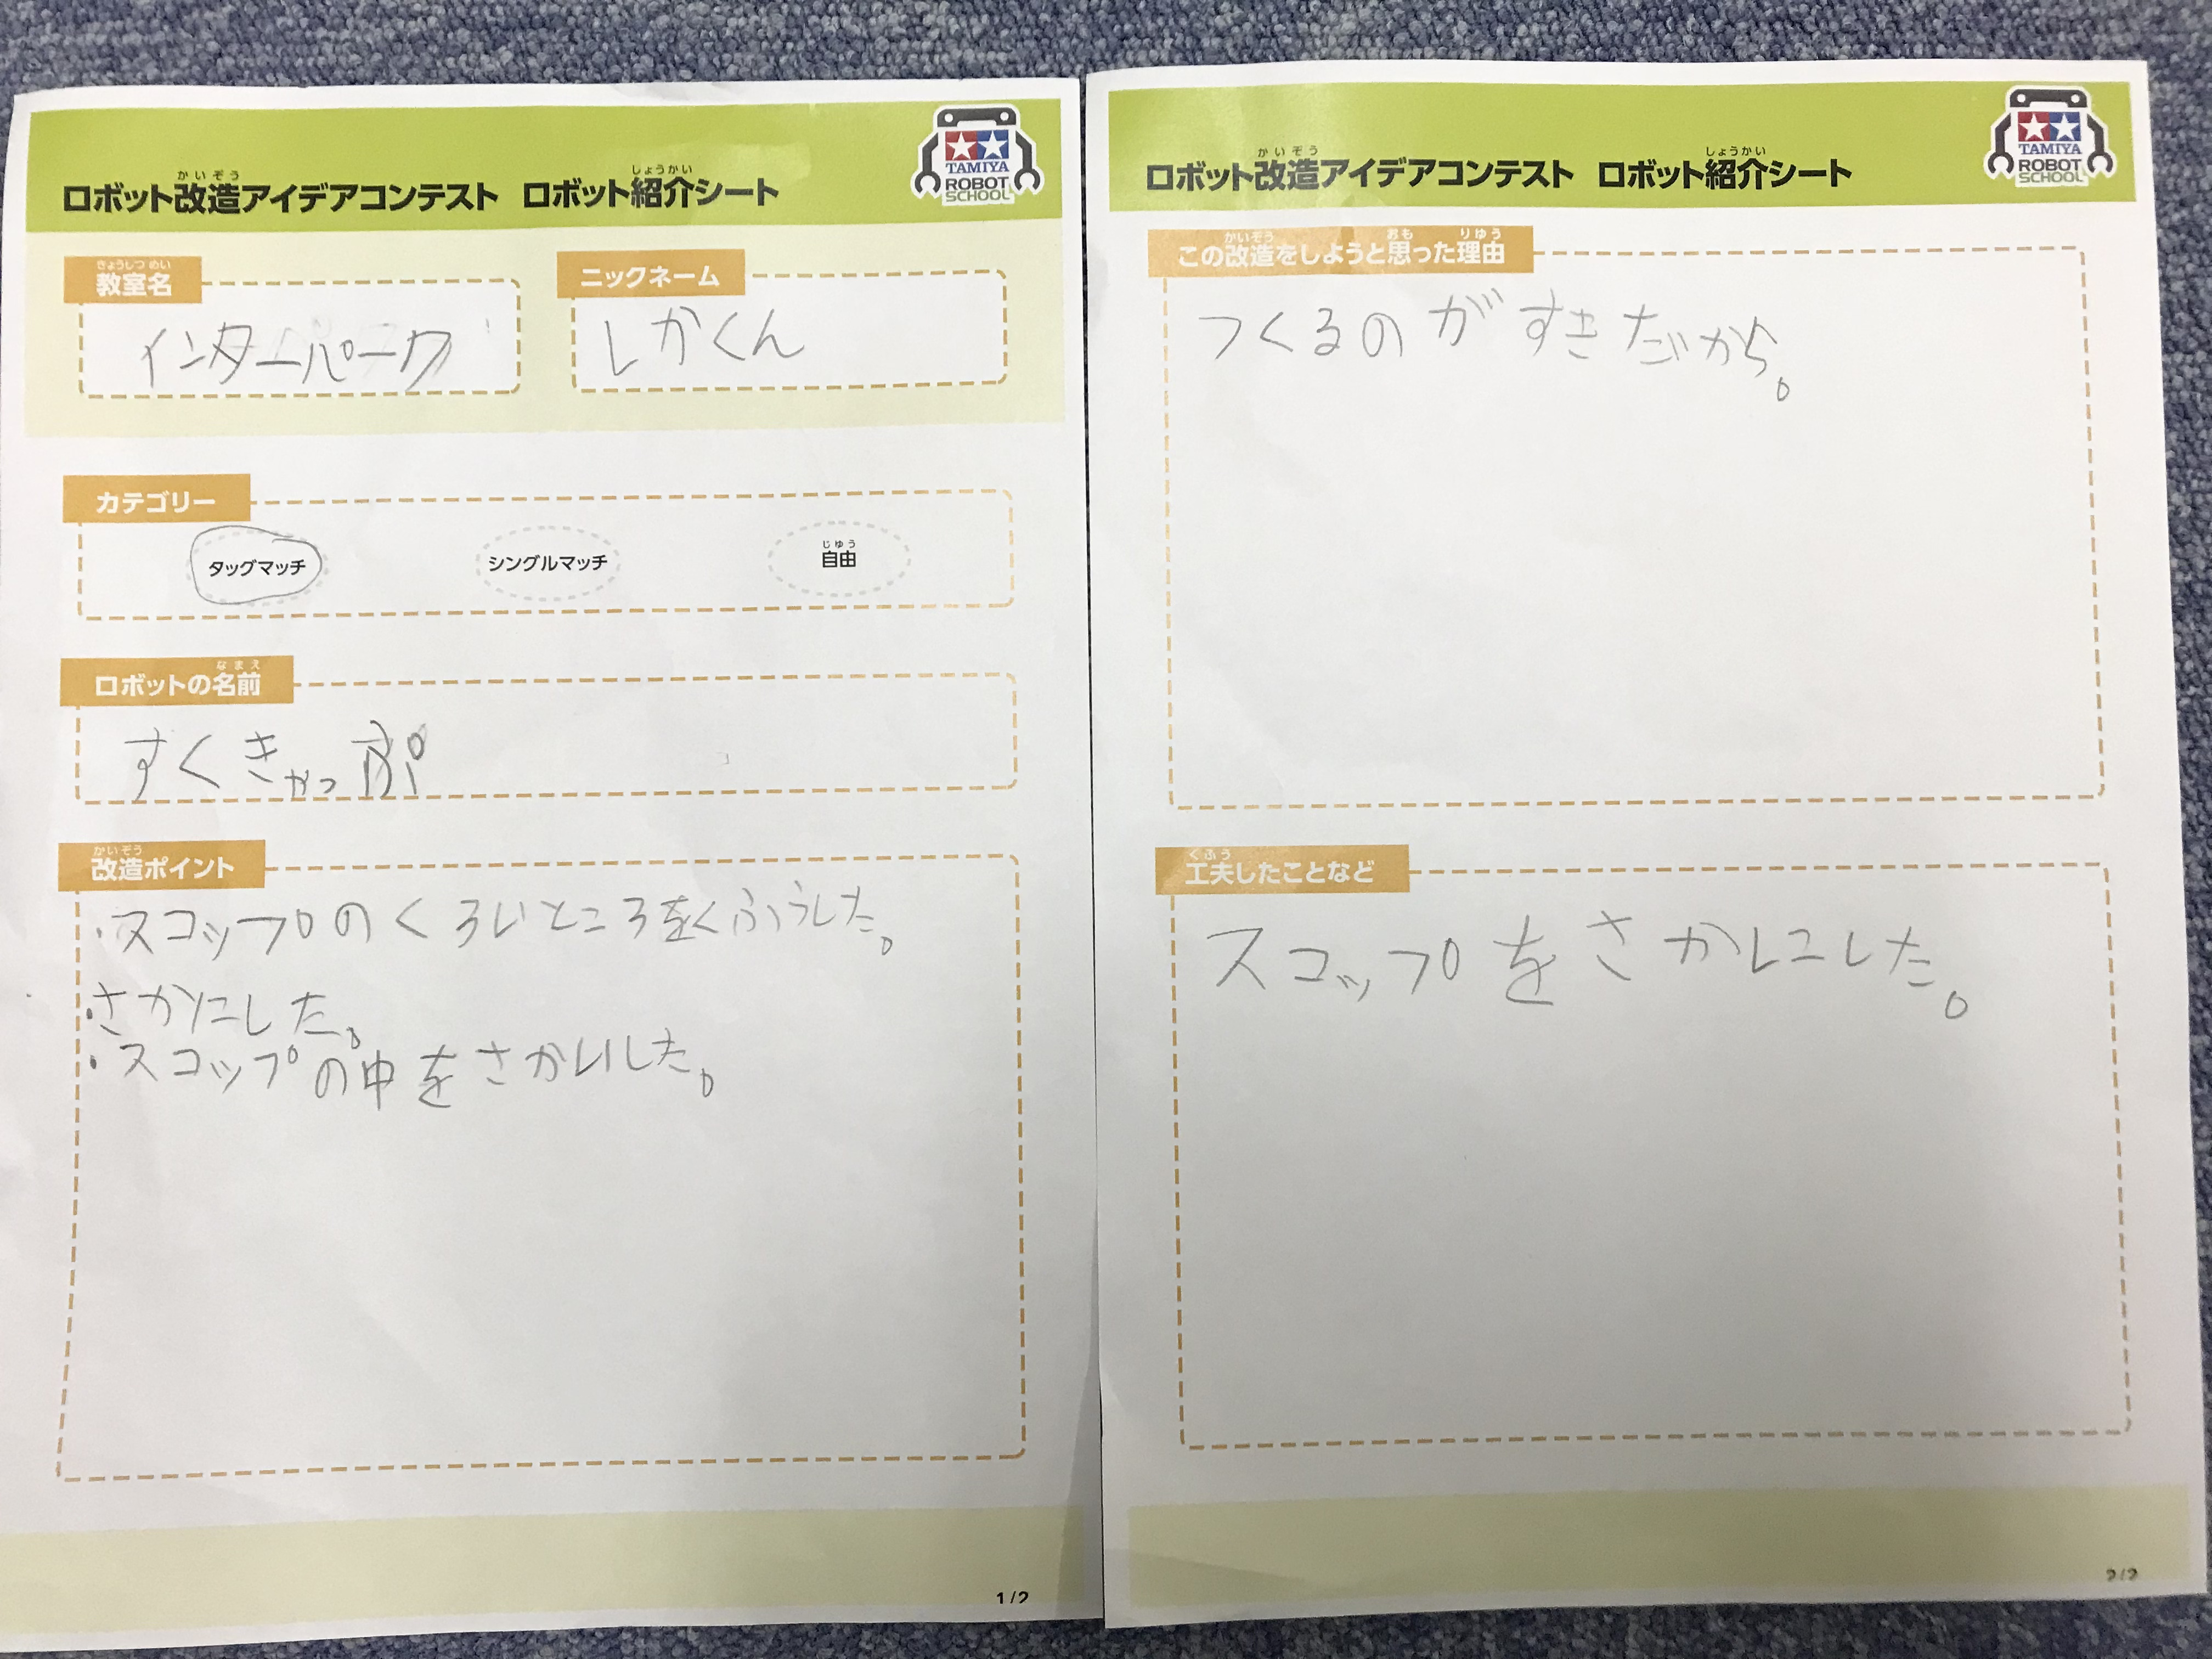 かいぞう しょうかい
ロボット改造アイデアコンテスト ロボット紹介シート
TAMIYA
ROBOT
SCHOOL
きょうしつ めい
教室名
インターパーク
ニックネーム
しかくん
カテゴリー
タッグマッチ
シングルマッチ
じゆう
自由
なまえ
ロボットの名前
すくきゃっぷ
かいぞう
改造ポイント
・スコップのくろいところをくふうした。
・さかにした。
・スコップの中をさかいした。
1/2
かいぞう しょうかい
ロボット改造アイデアコンテスト ロボット紹介シート
TAMIYA
ROBOT
SCHOOL
かいぞう おも りゆう
この改造をしようと思った理由
つくるのがすきだから。
くふう
工夫したことなど
スコップをさかにした。
2/2